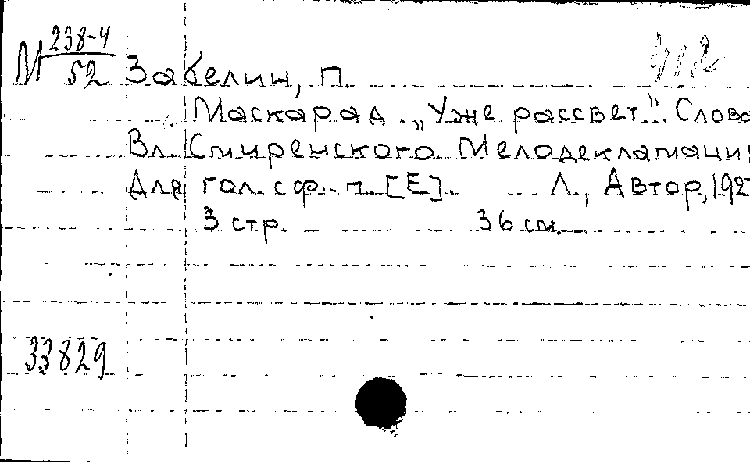 М 238-4
52
Забелин, П.
Маскарад. „Уже рассвет". Слова
Вл. Смиренского. Мелодекламаци
Для гол. с ф.-п. [Е]. Л., Автор, 192
3 стр. 36 см.
33829